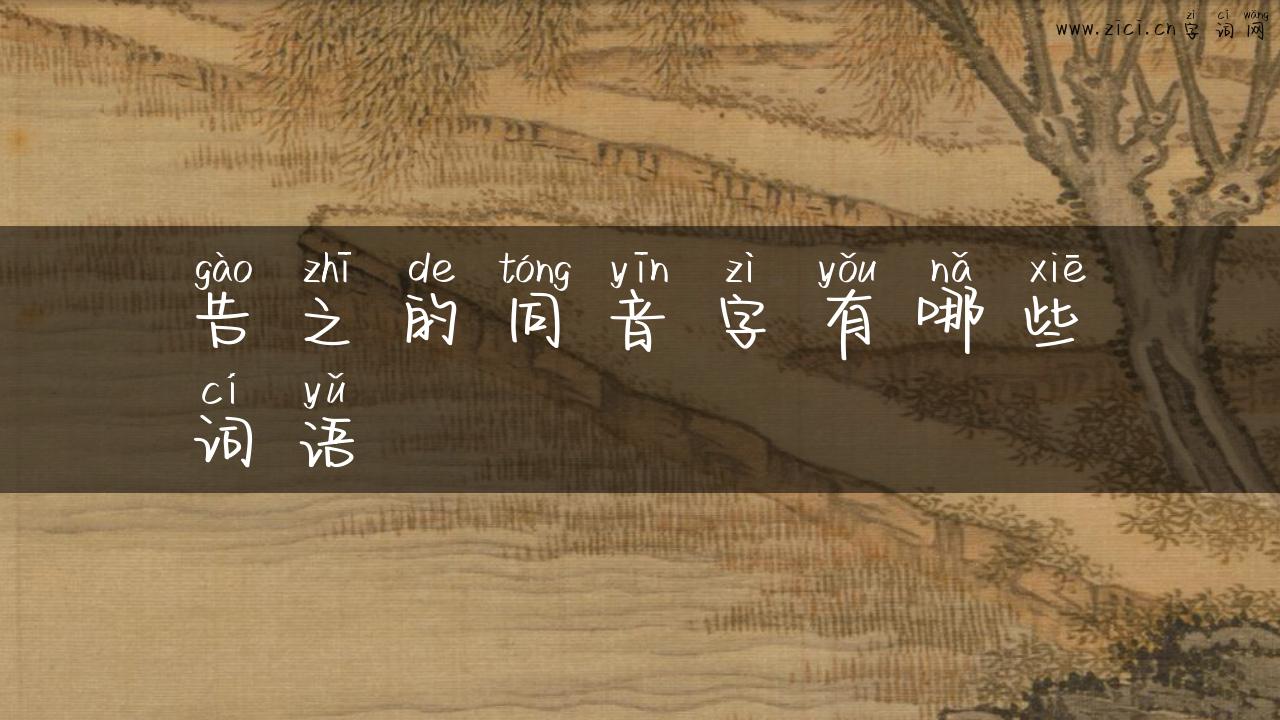 zì cí wǎng
www.zici.cn字词网
gào zhī de tóng yīn zì yǒu nǎ xiē
告之的同音字有哪些
cí yǔ
词语